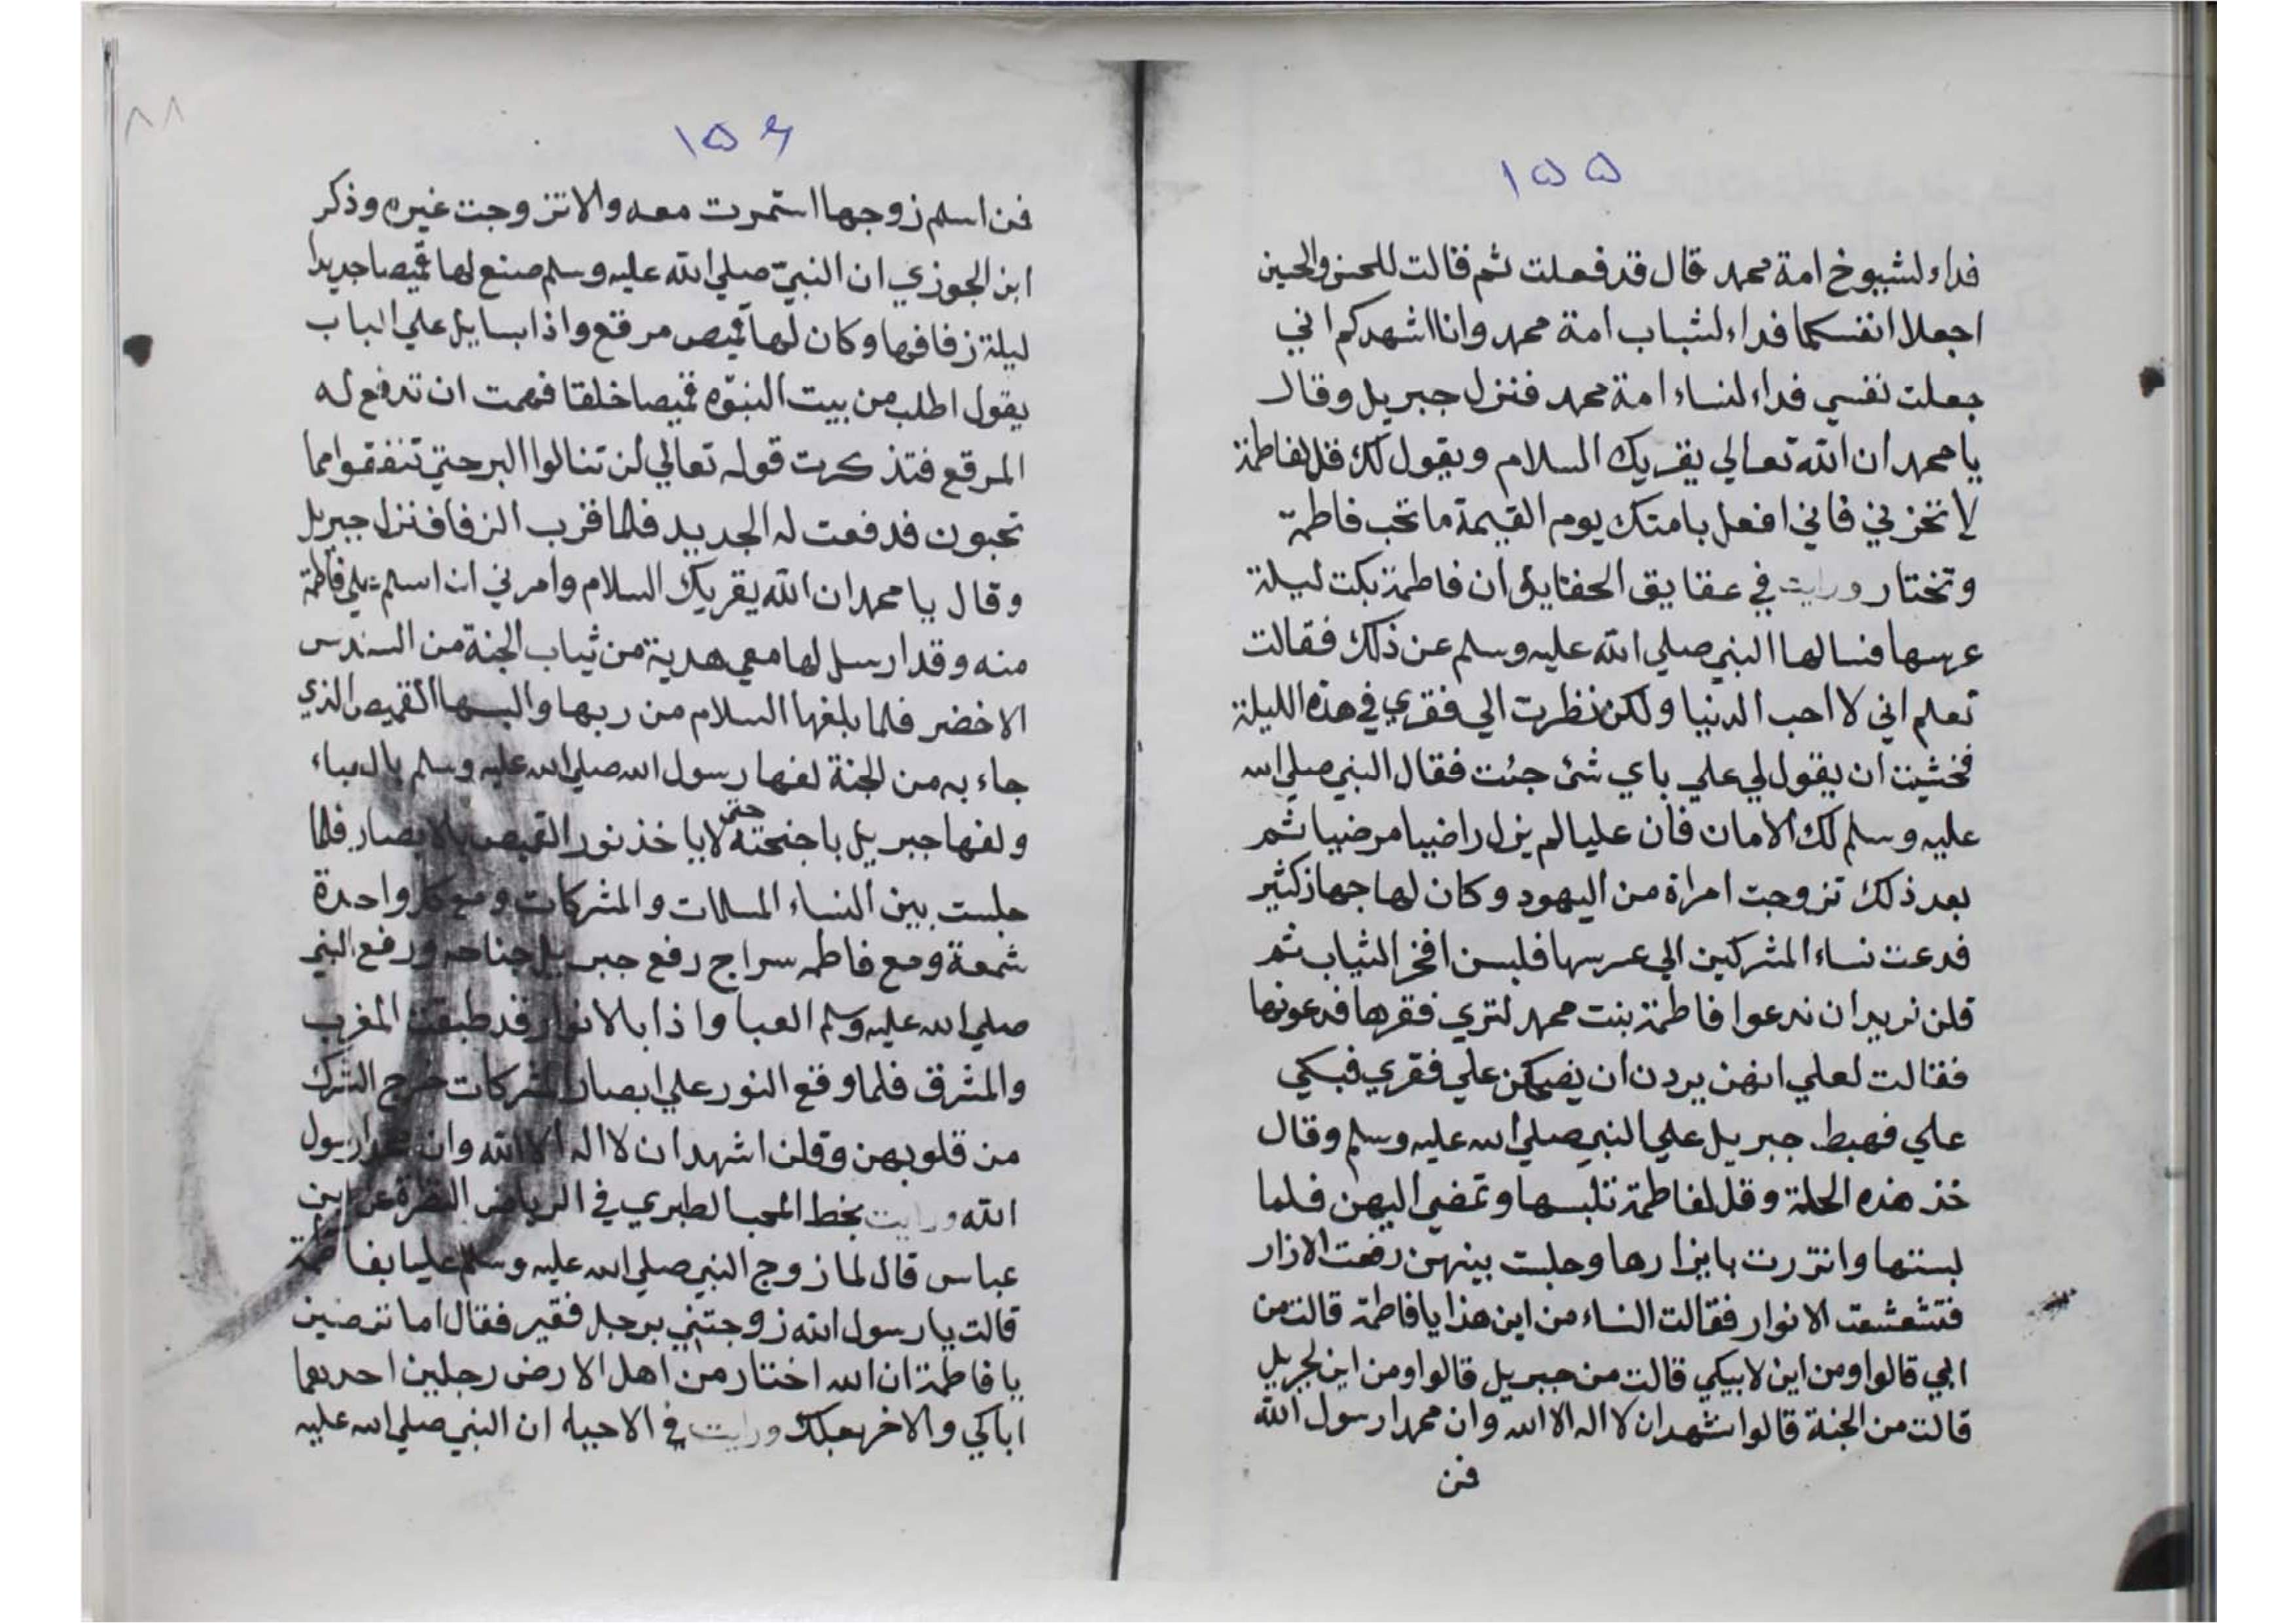 ١٥٥
فداء لشيوخ امة محمد قال قد فعلت ثم قالت للحسن والحسين
اجعلا انفسكما فداء لشباب امة محمد وانا اشهدكم اني
جعلت نفسي فداء لنساء امة محمد فنزل جبريل وقال
يا محمد ان الله تعالي يقريك السلام ويقول لك قل لفاطمة
لا تحزني فاني افعل بامتك يوم القيمة ما تحب فاطمة
وتختار ورايت في عقايق الحقايق ان فاطمة بكت ليلة
عرسها فسالها النبي صلي الله عليه وسلم عن ذلك فقالت
تعلم اني لا احب الدنيا ولكن نظرت الي فقري في هذه الليلة
فخشيت ان يقول لي علي باي شئ جئت فقال النبي صلي الله
عليه وسلم لك الامان فان عليا لم يزل راضيا مرضيا ثم
بعد ذلك تزوجت امراة من اليهود وكان لها جهاز كثير
فدعت نساء المشركين الي عرسها فلبسن افخر الثياب ثم
قلن نريد ان ندعوا فاطمة بنت محمد لتري فقرها فدعونها
فقالت لعلي انهن يردن ان يضحكن علي فقري فبكي
علي فهبط جبريل علي النبي صلي الله عليه وسلم وقال
خذ هذه الحلة وقل لفاطمة تلبسها وتمضي اليهن فلما
لبستها واتزرت بايزارها وجلست بينهن رفعت الازار
فتشعشعت الانوار فقالت النساء من اين هذا يا فاطمة قالت من
ابي قالوا ومن اين لابيكي قالت من جبريل قالوا ومن اين لجبريل
قالت من الجنة قالوا نشهد ان لا اله الا الله وان محمدا رسول الله
فمن
٨٨
١٥٦
فمن اسلم زوجها استمرت معه والا تزوجت غيره وذكر
ابن الجوزي ان النبي صلي الله عليه وسلم صنع لها قميصا جديدا
ليلة زفافها وكان لها قميص مرقع واذا بسايل علي الباب
يقول اطلب من بيت النبوه قميصا خلقا فهمت ان تدفع له
المرقع فتذكرت قوله تعالي لن تنالوا البر حتي تنفقوا مما
تحبون فدفعت له الجديد فلما قرب الزفاف نزل جبريل
وقال يا محمد ان الله يقريك السلام وامرني ان اسلم علي فاطمة
منه وقد ارسل لها معي هدية من ثياب الجنة من السندس
الاخضر فلما بلغها السلام من ربها والبسها القميص الذي
جاء به من الجنة لفها رسول الله صلي الله عليه وسلم بالعباء
ولفها جبريل باجنحته حتى لا ياخذ نور القميص بالابصار فلما
جلست بين النساء المسلمات والمشركات ومع كل واحدة
شمعة ومع فاطمه سراج رفع جبريل جناحه ورفع النبي
صلي الله عليه وسلم العبا واذا بالانوار قد طبقت المغرب
والمشرق فلما وقع النور علي ابصار المشركات خرج الشرك
من قلوبهن وقلن اشهد ان لا اله الا الله وان محمدا رسول
الله ورايت بخط المحب الطبري في الرياض النضرة عن ابن
عباس قال لما زوج النبي صلي الله عليه وسلم عليا بفاطمة
قالت يا رسول الله زوجتني برجل فقير فقال اما ترضين
يا فاطمة ان الله اختار من اهل الارض رجلين احدهما
اباكي والاخر بعلك ورايت في الاحياء ان النبي صلي الله عليه